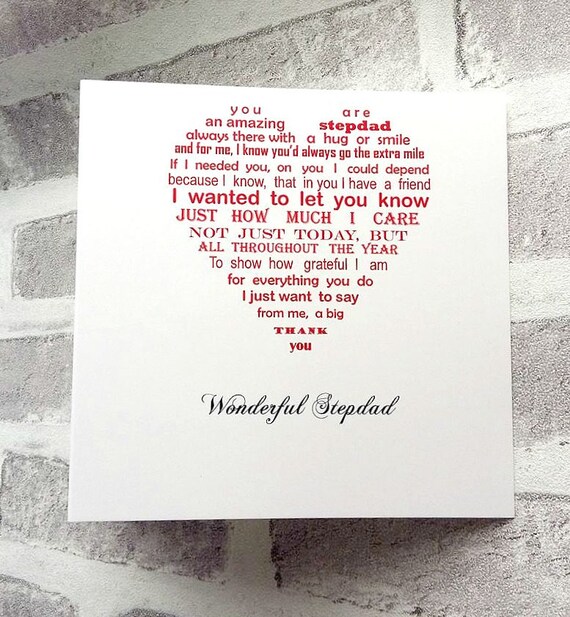 you are
an amazing stepdad
always there with a hug or smile
and for me, I know you'd always go the extra mile
If I needed you, on you I could depend
because I know, that in you I have a friend
I wanted to let you know
JUST HOW MUCH I CARE
NOT JUST TODAY, BUT
ALL THROUGHOUT THE YEAR
To show how grateful I am
for everything you do
I just want to say
from me, a big
THANK
you
Wonderful Stepdad